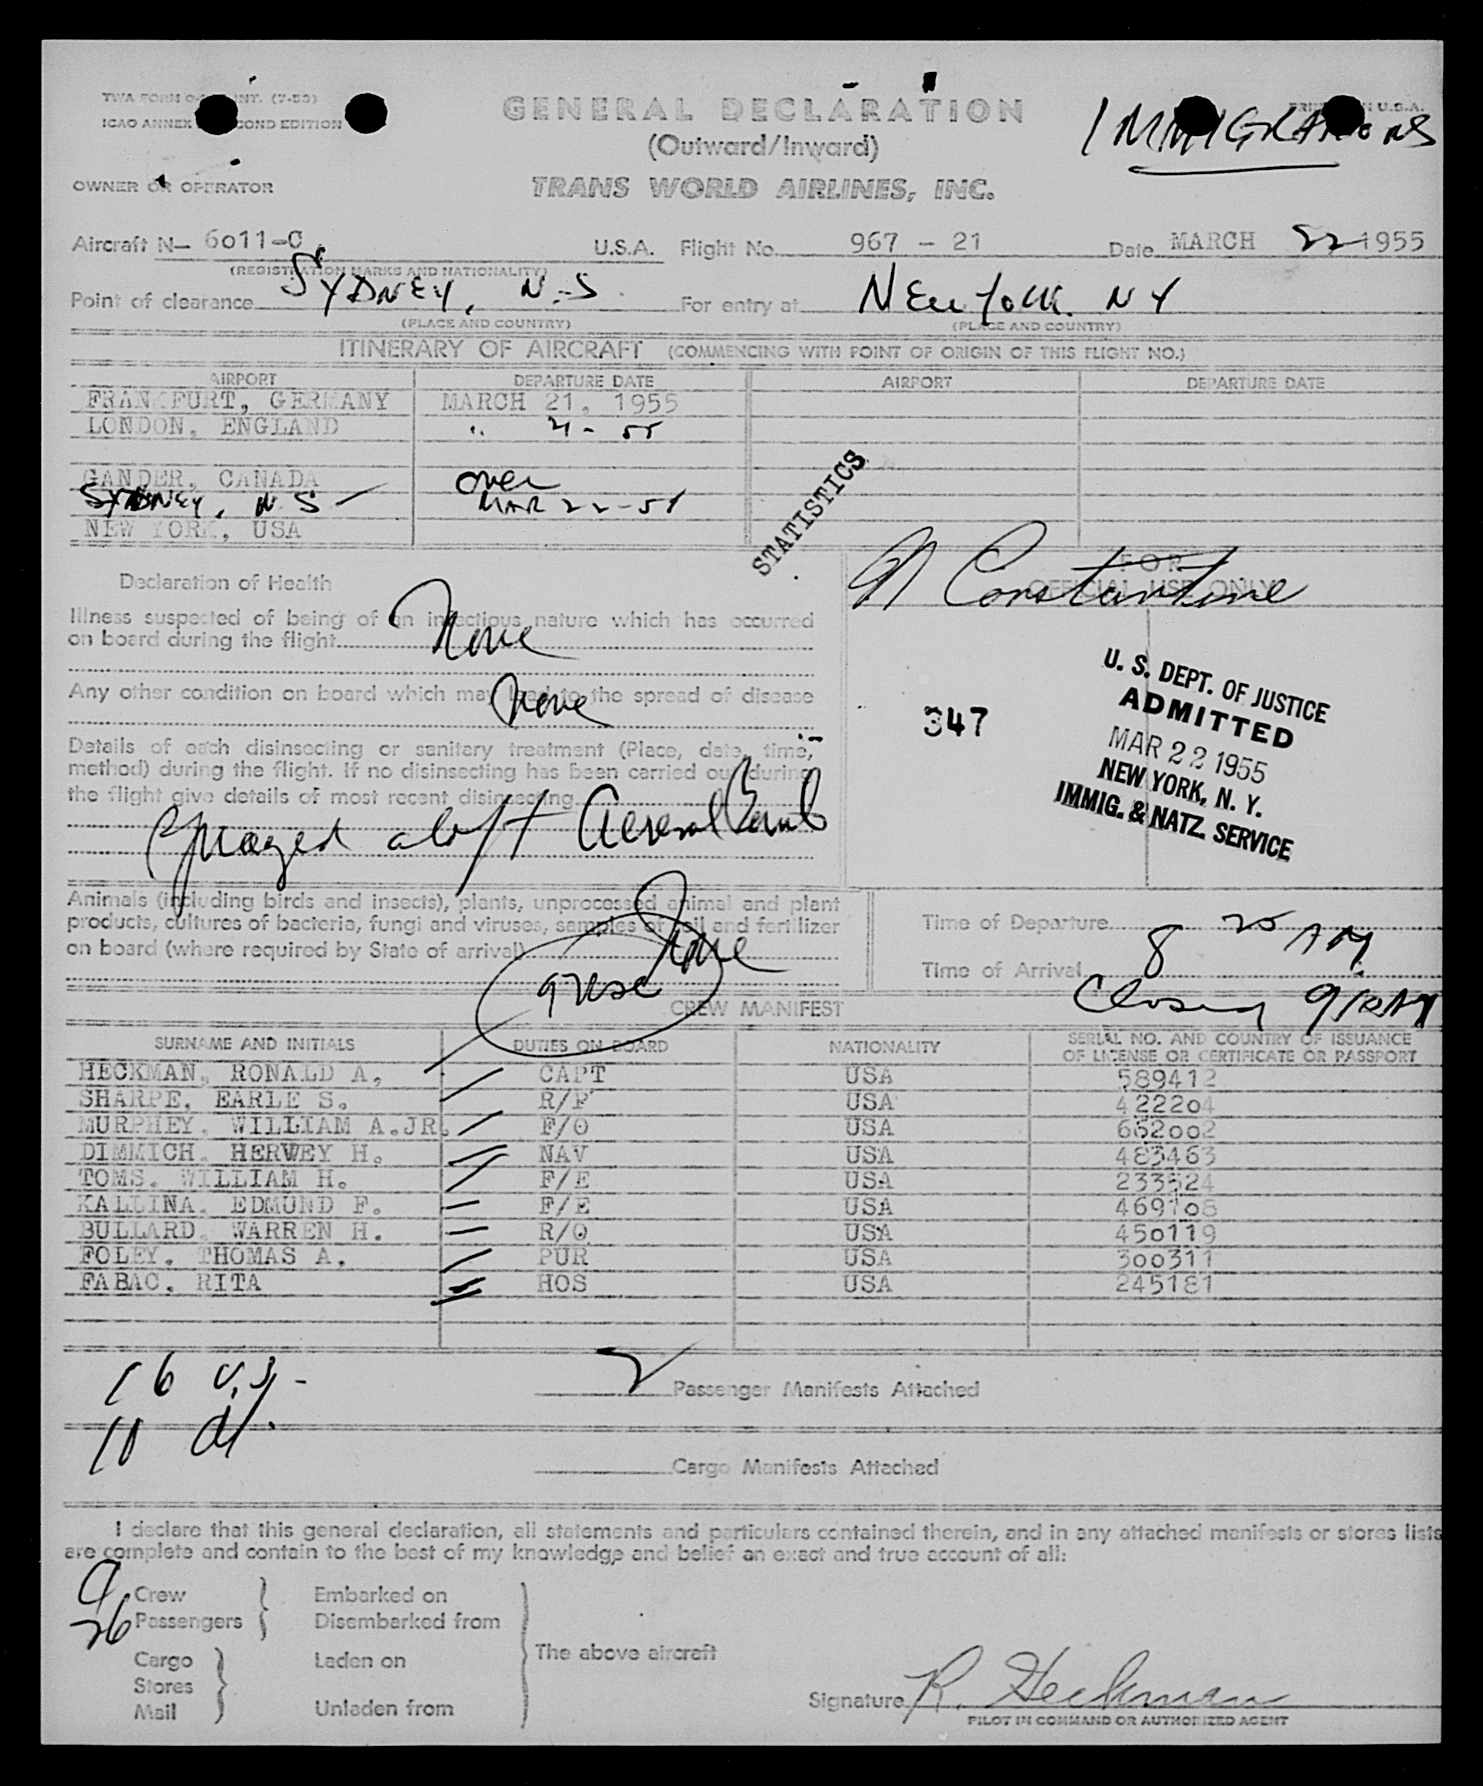 TWA FORM INT. (7-53)
ICAO ANNEX SECOND EDITION
GENERAL DECLARATION
(Outward/Inward)
PRINTED IN U.S.A.
IMMIGRATIONS
OWNER OR OPERATOR
TRANS WORLD AIRLINES, INC.
Aircraft N- 6011-C U.S.A. Flight No. 967 - 21 Date MARCH 22 1955
(REGISTRATION MARKS AND NATIONALITY)
Point of clearance SYDNEY, N.S. For entry at New York. NY
(PLACE AND COUNTRY) (PLACE AND COUNTRY)
ITINERARY OF AIRCRAFT (COMMENCING WITH POINT OF ORIGIN OF THIS FLIGHT NO.)
AIRPORT DEPARTURE DATE AIRPORT DEPARTURE DATE
FRANKFURT, GERMANY MARCH 21, 1955
LONDON, ENGLAND " 21-55
GANDER, CANADA over
SYDNEY, N.S - MAR 22-55
NEW YORK, USA
STATISTICS
FOR
OFFICIAL USE ONLY
N Constantine
Declaration of Health
Illness suspected of being of an infectious nature which has occurred
on board during the flight None
Any other condition on board which may lead to the spread of disease
None
Details of each disinsecting or sanitary treatment (Place, date, time,
method) during the flight. If no disinsecting has been carried out during
the flight give details of most recent disinsecting
Sprayed aloft Aerosol Bomb
347
U. S. DEPT. OF JUSTICE
ADMITTED
MAR 22 1955
NEW YORK, N. Y.
IMMIG. & NATZ. SERVICE
Animals (including birds and insects), plants, unprocessed animal and plant
products, cultures of bacteria, fungi and viruses, samples of soil and fertilizer
on board (where required by State of arrival) None
Time of Departure
Time of Arrival 8 20 AM
Closed 910AM
CREW MANIFEST
SURNAME AND INITIALS DUTIES ON BOARD NATIONALITY SERIAL NO. AND COUNTRY OF ISSUANCE
OF LICENSE OR CERTIFICATE OR PASSPORT
HECKMAN, RONALD A, CAPT USA 589412
SHARPE, EARLE S. R/P USA 422204
MURPHEY, WILLIAM A.JR. F/O USA 662002
DIMMICH, HERWEY H. NAV USA 483463
TOMS, WILLIAM H. F/E USA 233524
KALLINA, EDMUND F. F/E USA 469708
BULLARD, WARREN H. R/O USA 450119
FOLEY, THOMAS A. PUR USA 300311
FABAC, RITA HOS USA 245181
16 U.S. -
10 Al.
2 Passenger Manifests Attached
Cargo Manifests Attached
I declare that this general declaration, all statements and particulars contained therein, and in any attached manifests or stores lists
are complete and contain to the best of my knowledge and belief an exact and true account of all:
9 Crew Embarked on
26 Passengers Disembarked from
The above aircraft
Cargo Laden on
Stores
Mail Unladen from
Signature R. Heckman
PILOT IN COMMAND OR AUTHORIZED AGENT